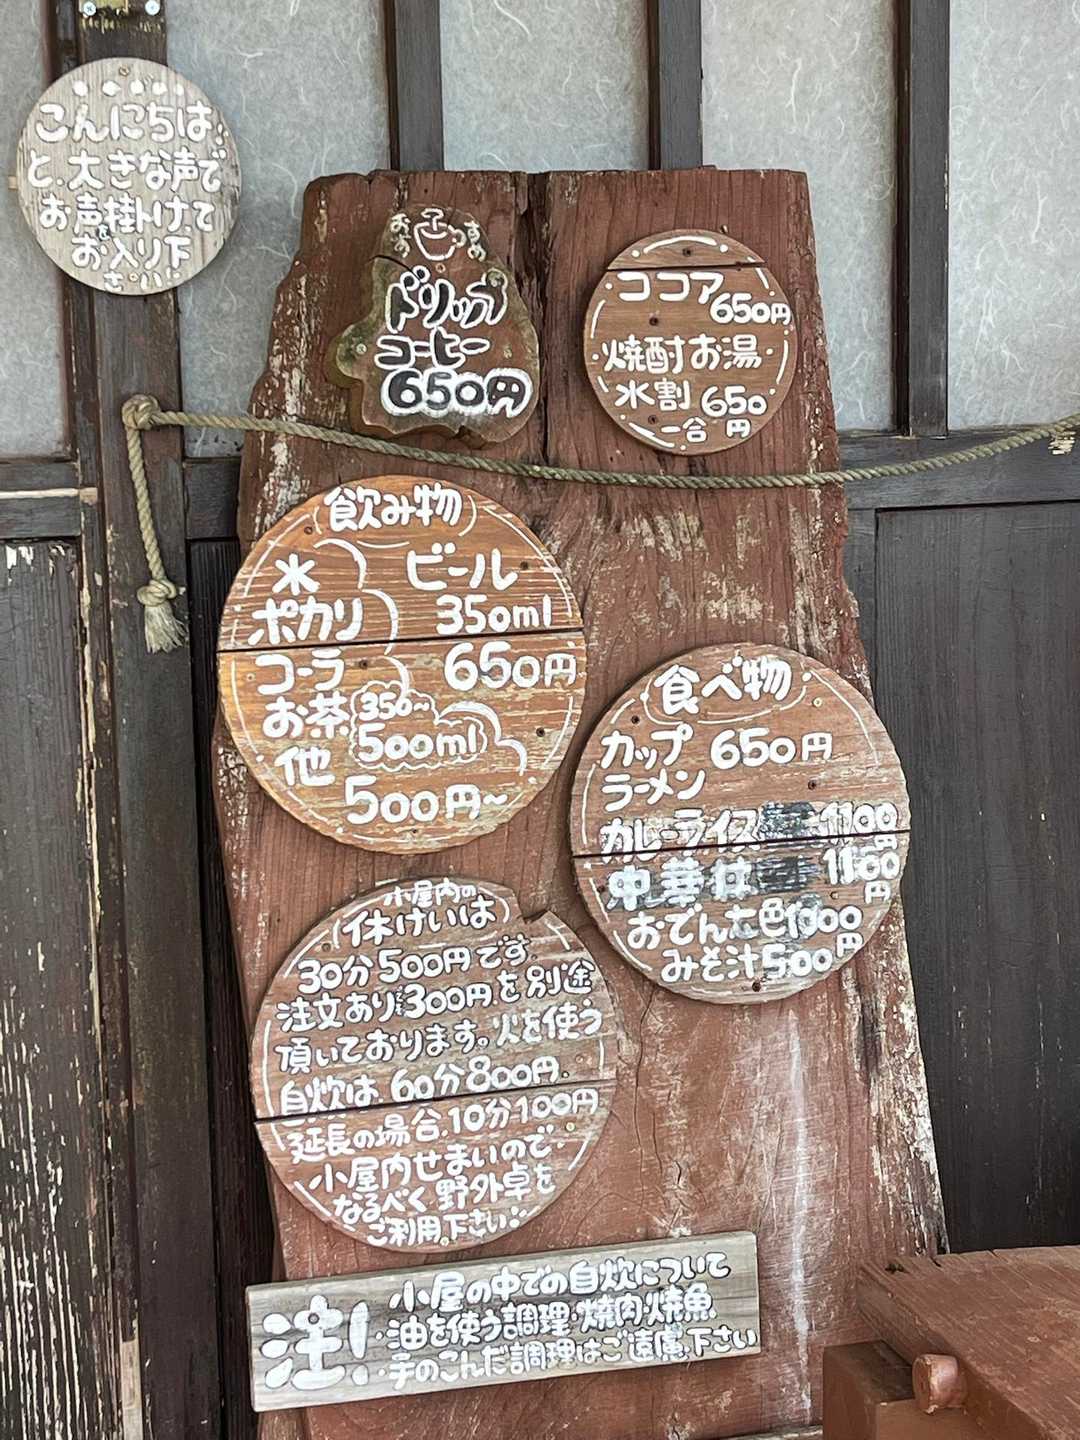 こんにちは
と大きな声で
お声を掛けて
お入り下
さい
おすすめ
ドリップ
コーヒー
650円
ココア
650円
焼酎お湯
水割 650
一合 円
飲み物
水
ポカリ
コーラ
お茶
他
350〜
500ml
500円〜
ビール
350ml
650円
食べ物
カップ 650円
ラーメン
カレーライス 1100
円
中華丼 1100
円
おでん七色付900
円
みそ汁500
小屋内の
(休けいは)
30分500円です。
注文あり300円を別途
頂いております。火を使う
自炊は60分800円
延長の場合、10分100円
小屋内せまいので
なるべく野外卓を
ご利用下さい
注!
小屋の中での自炊について
・油を使う調理・焼肉焼魚
・手のこんだ調理はご遠慮下さい